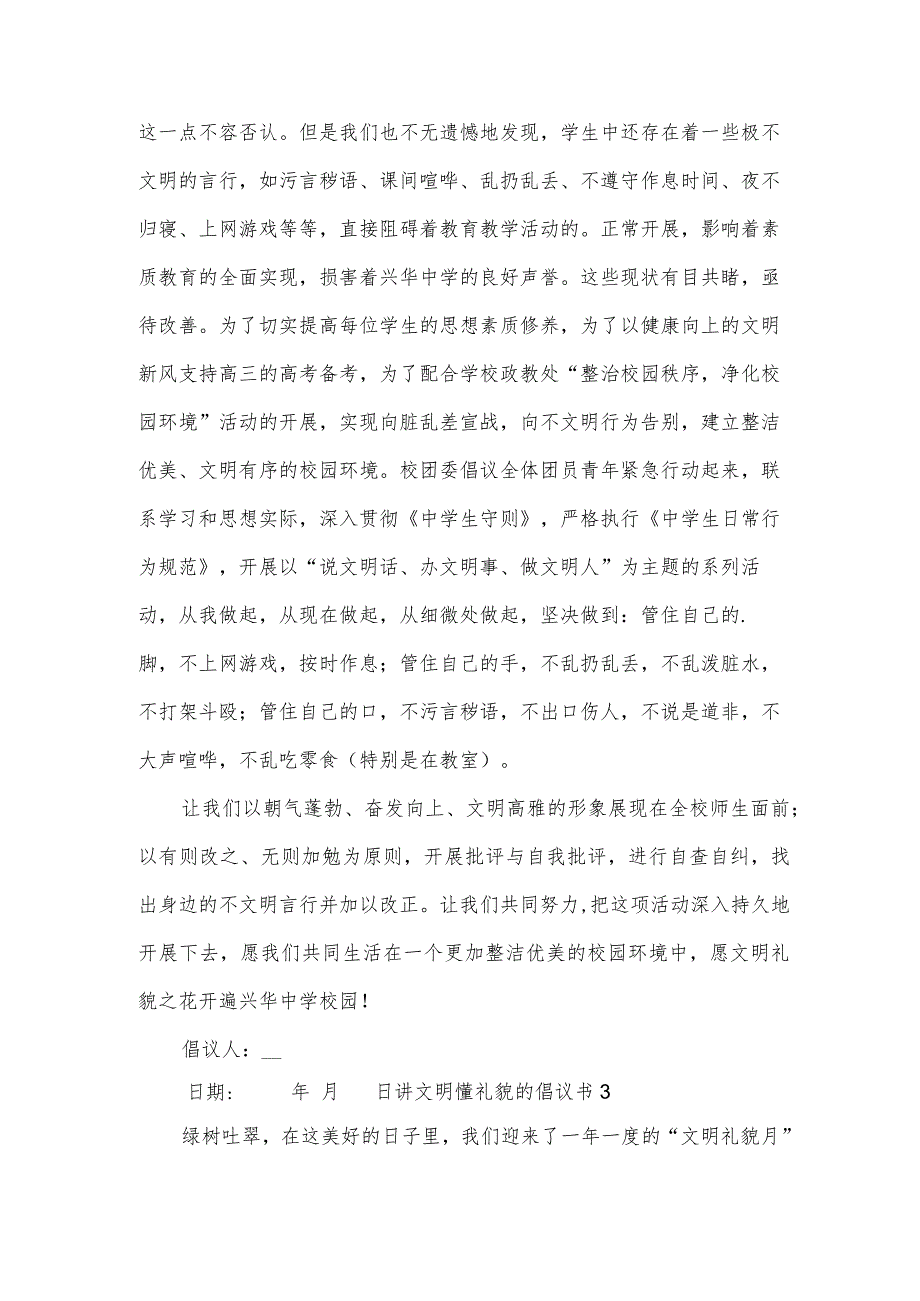 这一点不容否认。但是我们也不无遗憾地发现，学生中还存在着一些极不
文明的言行，如污言秽语、课间喧哗、乱扔乱丢、不遵守作息时间、夜不
归寝、上网游戏等等，直接阻碍着教育教学活动的。正常开展，影响着素
质教育的全面实现，损害着兴华中学的良好声誉。这些现状有目共睹，亟
待改善。为了切实提高每位学生的思想素质修养，为了以健康向上的文明
新风支持高三的高考备考，为了配合学校政教处“整治校园秩序，净化校
园环境”活动的开展，实现向脏乱差宣战，向不文明行为告别，建立整洁
优美、文明有序的校园环境。校团委倡议全体团员青年紧急行动起来，联
系学习和思想实际，深入贯彻《中学生守则》，严格执行《中学生日常行
为规范》，开展以“说文明话、办文明事、做文明人”为主题的系列活
动，从我做起，从现在做起，从细微处做起，坚决做到：管住自己的.
脚，不上网游戏，按时作息；管住自己的手，不乱扔乱丢，不乱泼脏水，
不打架斗殴；管住自己的口，不污言秽语，不出口伤人，不说是道非，不
大声喧哗，不乱吃零食（特别是在教室）。
让我们以朝气蓬勃、奋发向上、文明高雅的形象展现在全校师生面前；
以有则改之、无则加勉为原则，开展批评与自我批评，进行自查自纠，找
出身边的不文明言行并加以改正。让我们共同努力,把这项活动深入持久地
开展下去，愿我们共同生活在一个更加整洁优美的校园环境中，愿文明礼
貌之花开遍兴华中学校园！
倡议人：__
日期: 年 月 日讲文明懂礼貌的倡议书3
绿树吐翠，在这美好的日子里，我们迎来了一年一度的“文明礼貌月”